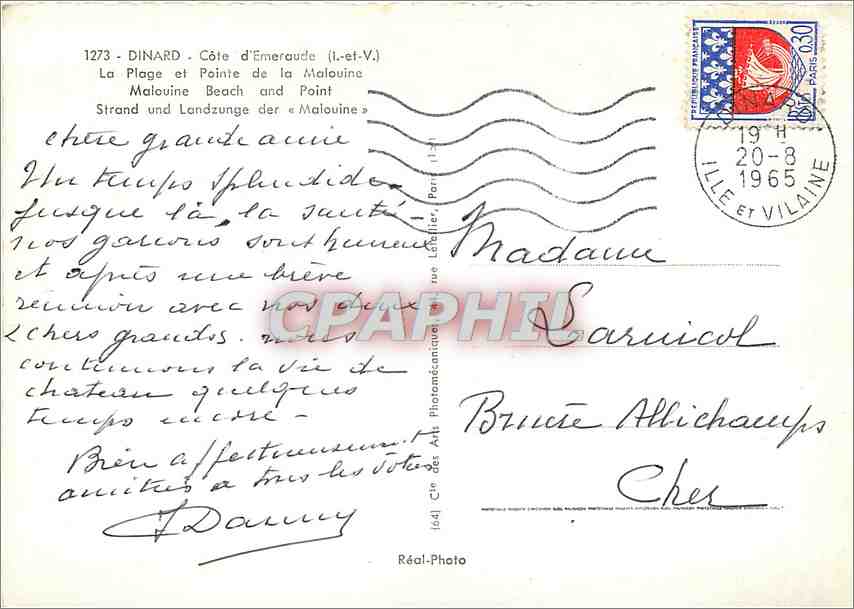 1273 - DINARD - Côte d'Emeraude (I.-et-V.)
La Plage et Pointe de la Malouine
Malouine Beach and Point
Strand und Landzunge der « Malouine »
chère grande amie
Un temps splendide
jusque là, la santé -
nos garcons sont heureux
et après une brève
réunion avec nos deux
chers grands. nous
continuons la vie de
chateau quelques
temps encore -
Bien affectueusement
amitiés a tous les votres
Danny
REPUBLIQUE FRANÇAISE
0.30
POSTES
PARIS
DINARD
19 H
20-8
1965
ILLE ET VILAINE
Madame
Larnicol
Bruère Allichamps
Cher
(64) Cie des Arts Photomécaniques, rue Letellier, Paris (15e)
Réal-Photo
CPAPHIL